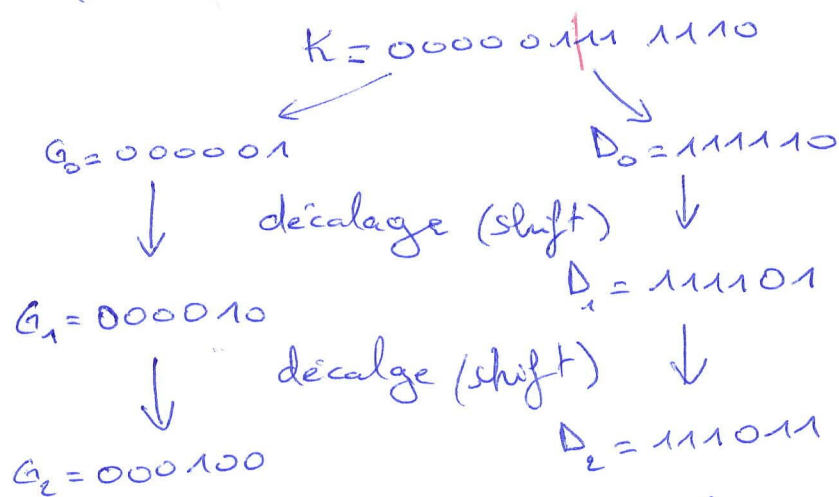 K = 0000 0111 1110
G₀ = 000001 D₀ = 111110
décalage (shift)
G₁ = 000010 D₁ = 111101
décalge (shift)
G₂ = 000100 D₂ = 111011